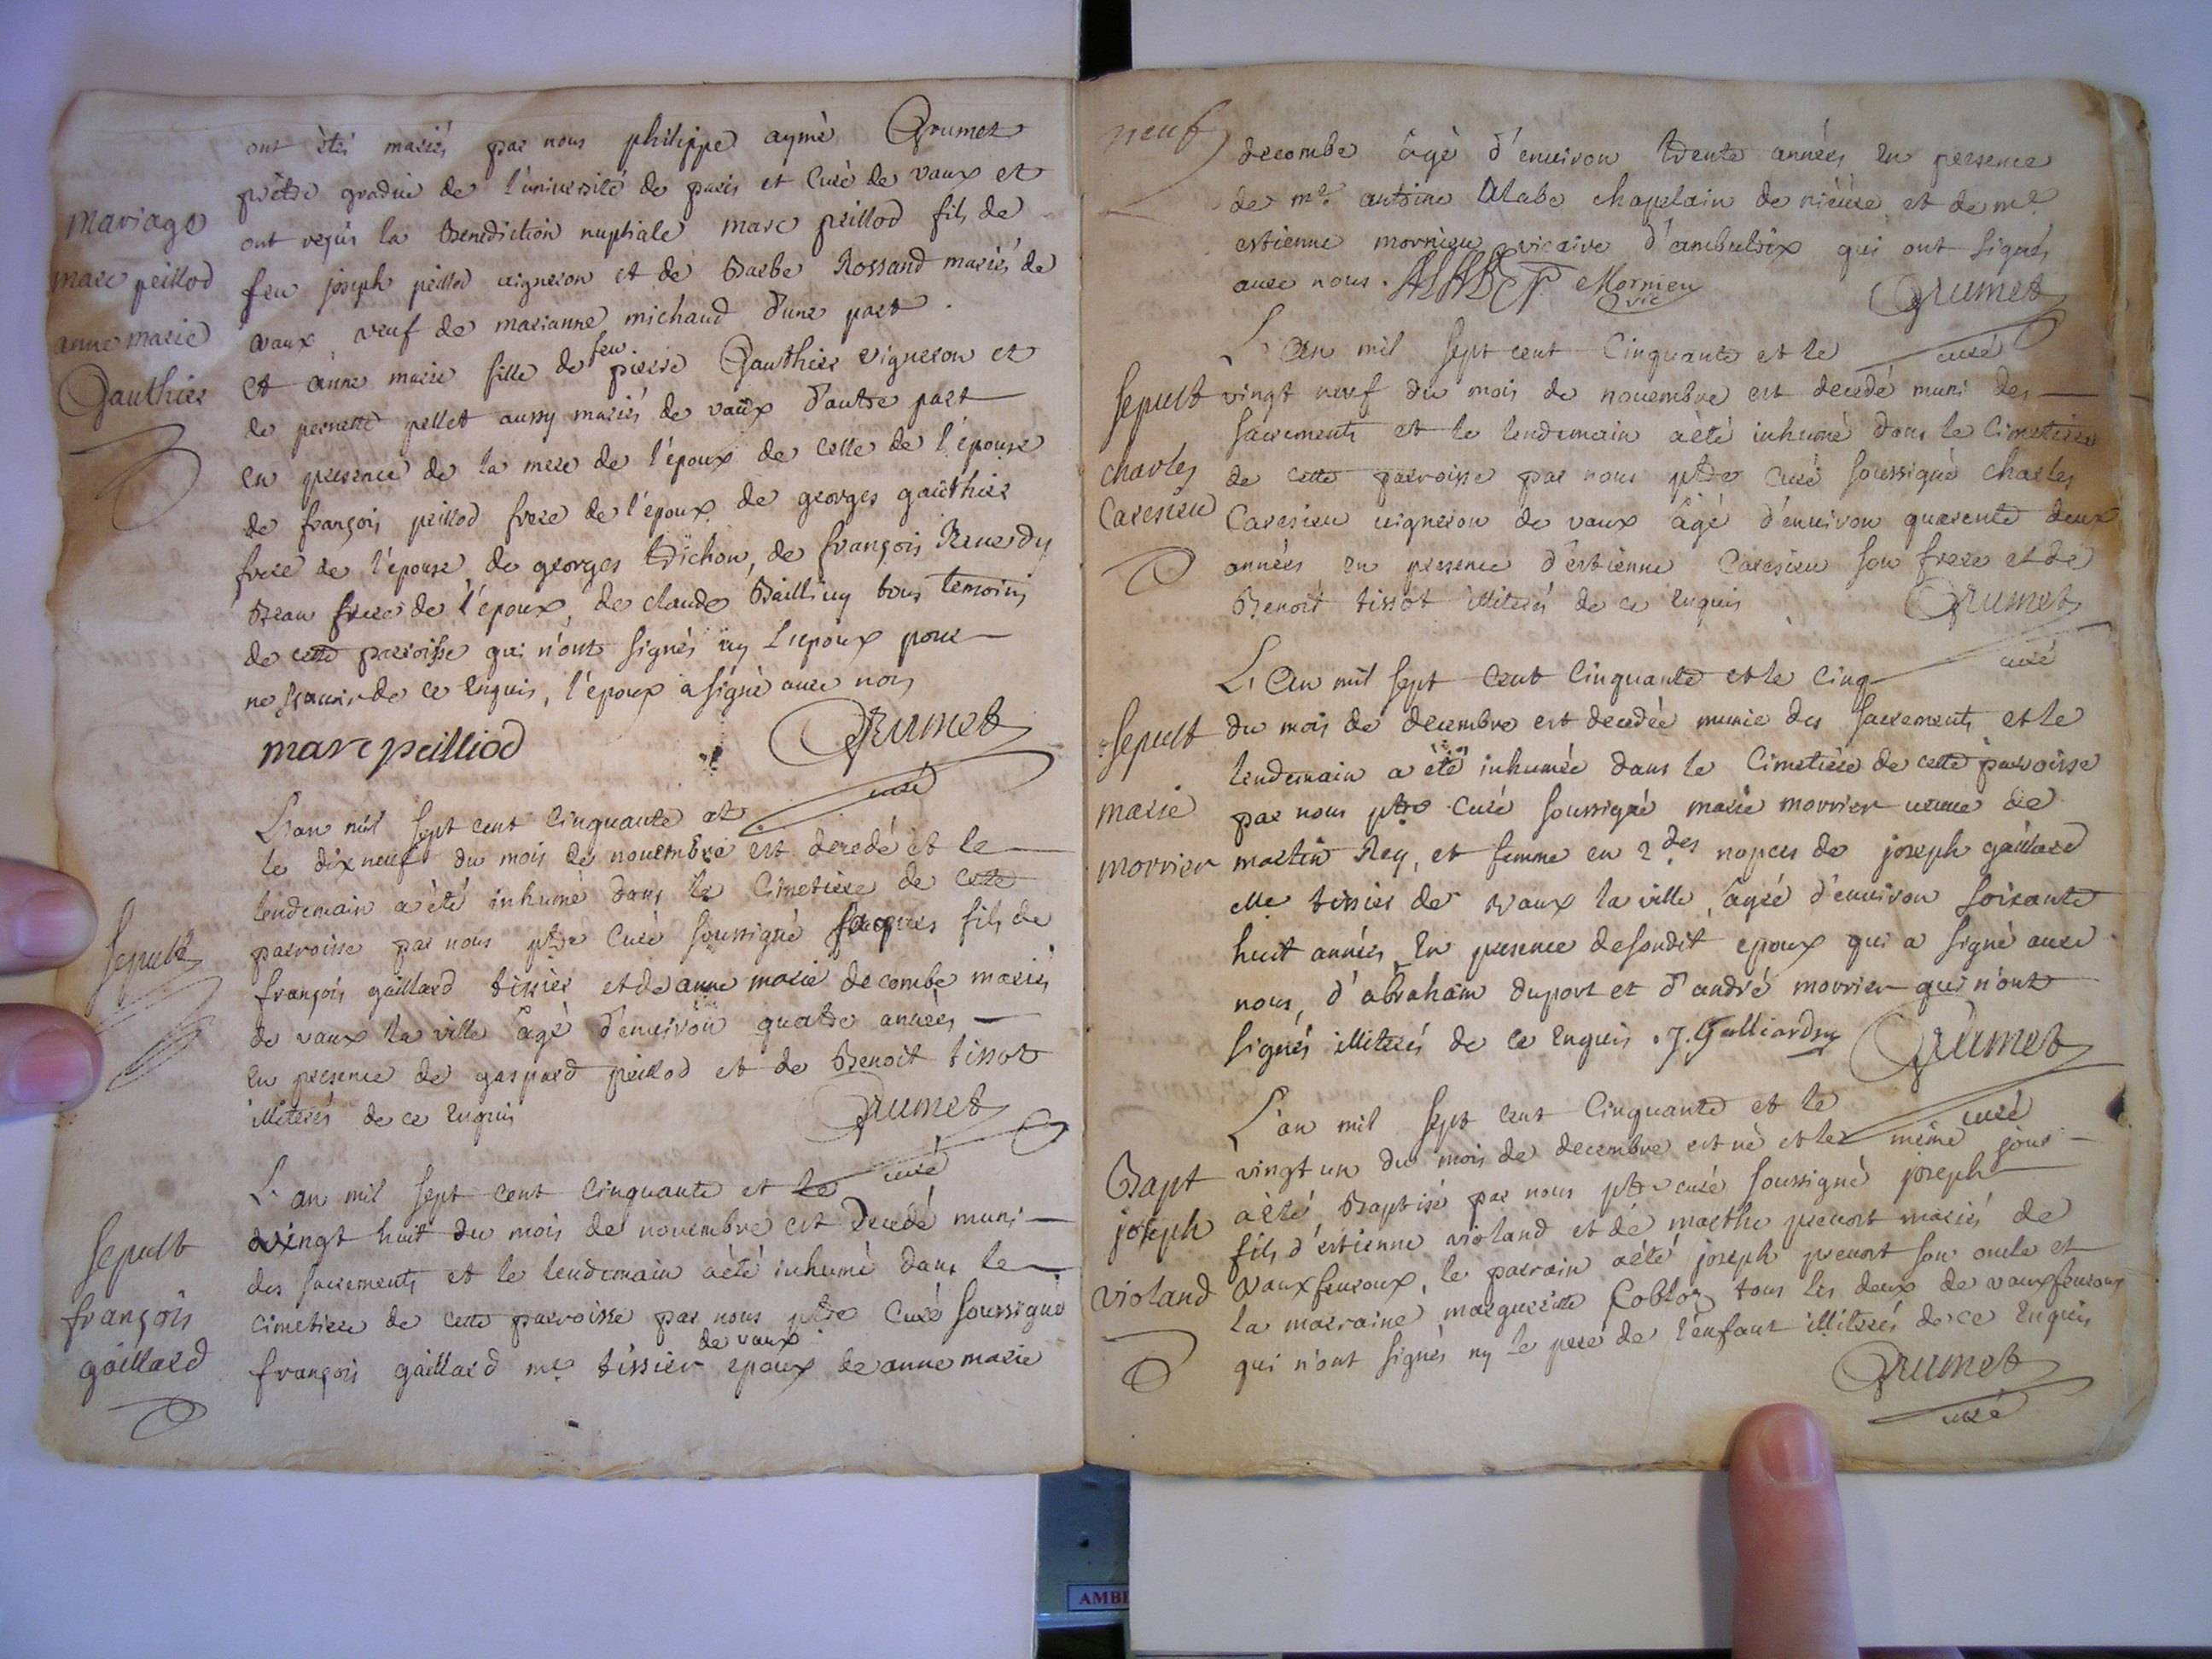 ont étés mariés par nous philippe aymé Grumet
prêtre gradué de l'université de paris et Curé de vaux et
mariage
ont reçus la Benediction nuptiale marc peillod fils de
marc peillod
feu joseph peillod vigneron et de Barbe Rossand mariés de
anne marie
vaux, veuf de marianne michaud d'une part.
Gauthier
et anne marie fille de feu pierre Gauthier vigneron et
de pernette pellet aussy mariés de vaux d'autre part
en presence de la mere de l'époux de celle de l'épouse
de françois peillod frere de l'époux de georges gauthier
frere de l'épouse de georges trichon, de françois
Beau frere de l'époux de claude Bailliuy tous temoins
de cette parroisse qui n'ont signés ny L'epoux pour
ne sçavoir de ce Enquis, l'époux a signé avec nous
marc peilliod Grumet
curé
L'an mil sept cent Cinquante et
le dix neuf du mois de novembre est decedé et le
lendemain a été inhumé dans le Cimetiere de cette
Sepult
parroisse par nous ptre Curé soussigné jacques fils de
françois gaillard tissier et de anne marie decombe mariés
de vaux la ville âgé d'environ quatre années
en presence de gaspard peillod et de Benoit tissot
illiterés de ce Enquis Grumet
curé
L'an mil sept cent Cinquante et le
Sepult
vingt huit du mois de novembre est Decedé muni
des sacrements et le lendemain a été inhumé dans le
françois
cimetiere de cette parroisse par nous ptre Curé soussigné
gaillard
françois gaillard me tissier de vaux epoux de anne marie
neuf
decombe âgé d'environ trente années en presence
de mre antoine Alabe chapelain de et de mre
estienne mornieu vicaire d'ambutrix qui ont signés
avec nous. ALABE P. Mornieu vic Grumet
curé
L'an mil sept cent Cinquante et le
Sepult
vingt neuf du mois de novembre est decedé muni des
sacrements et le lendemain a été inhumé dans le Cimetiere
charles
de cette parroisse par nous ptre Curé soussigné charles
Caresieu
Caresieu vigneron de vaux âgé d'environ quarente deux
années en presence d'estienne Caresieu son frere et de
Benoit tissot illiterés de ce Enquis Grumet
curé
L'an mil sept cent Cinquante et le cinq
Sepult
du mois de decembre est decedée munie des sacrements et le
lendemain a été inhumée dans le Cimetiere de cette parroisse
marie
par nous ptre Curé soussigné marie morrier veuve de
morrier
martin Rey, et femme en 2des nopces de joseph gaillard
me tissier de vaux la ville, âgée d'environ soixante
huit années, En presence de sondit epoux qui a signé avec
nous, d'abraham duport et d'andré morrier qui n'ont
signés illiterés de ce Enquis. J. Galliard Grumet
curé
L'an mil sept cent Cinquante et le
Bapt
vingt un du mois de decembre est né et le même jour
joseph
a été Baptisé par nous ptre curé soussigné joseph
fils d'estienne violand et de marthe prenost mariés de
violand
vauxfeuroux, le parrain a été joseph prenost son oncle et
la marraine marguerite tous les deux de vauxfeuroux
qui n'ont signés ny le pere de l'enfant illiterés de ce Enquis
Grumet
curé
AMBE